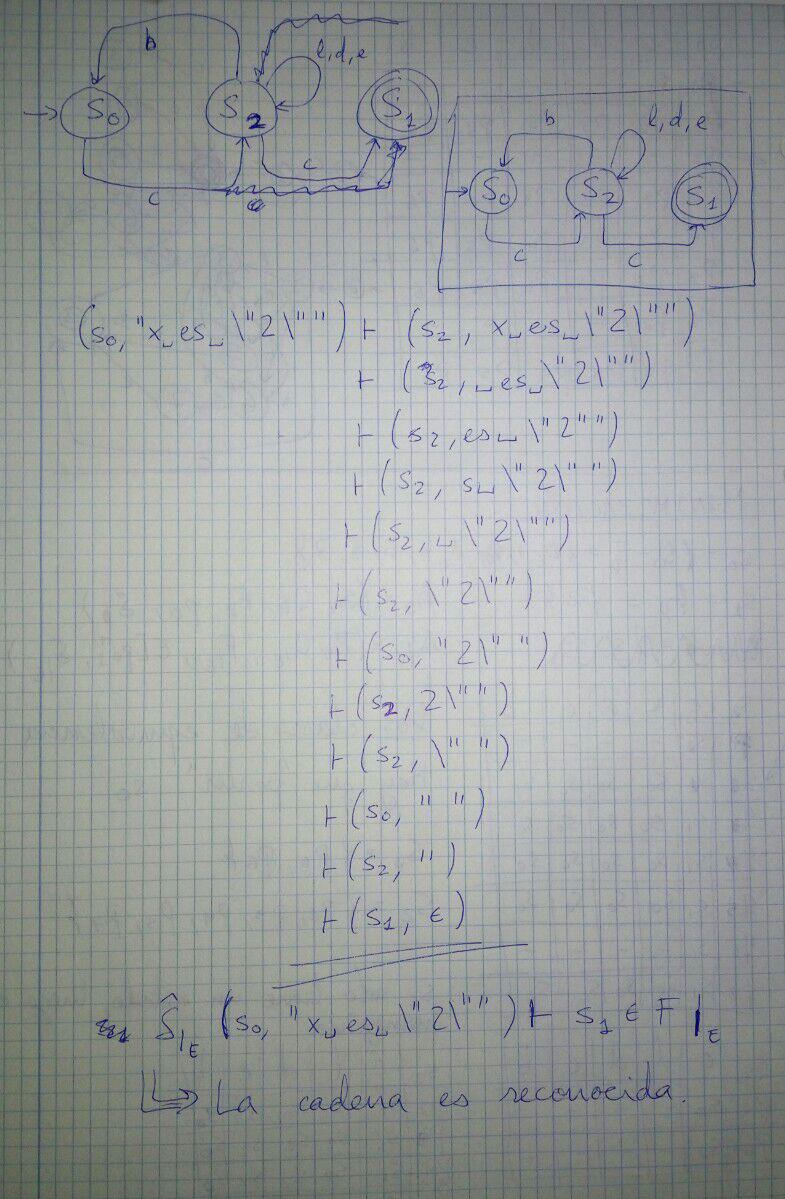 b
l,d,e
S₀ S₂ S₁
c c
b l,d,e
S₀ S₂ S₁
c c
(s₀, "x␣es␣\"2\"") ⊢ (s₂, x␣es␣\"2\"")
⊢ (s₂, ␣es␣\"2\"")
⊢ (s₂, es␣\"2"")
⊢ (s₂, s␣\"2\"")
⊢ (s₂, ␣\"2\"")
⊢ (s₂, \"2\"")
⊢ (s₀, "2\"")
⊢ (s₂, 2\"")
⊢ (s₂, \"")
⊢ (s₀, "")
⊢ (s₂, ")
⊢ (s₁, ϵ)
Ŝ|E (s₀, "x␣es␣\"2\"") ⊢ s₁ ∈ F|E
La cadena es reconocida.